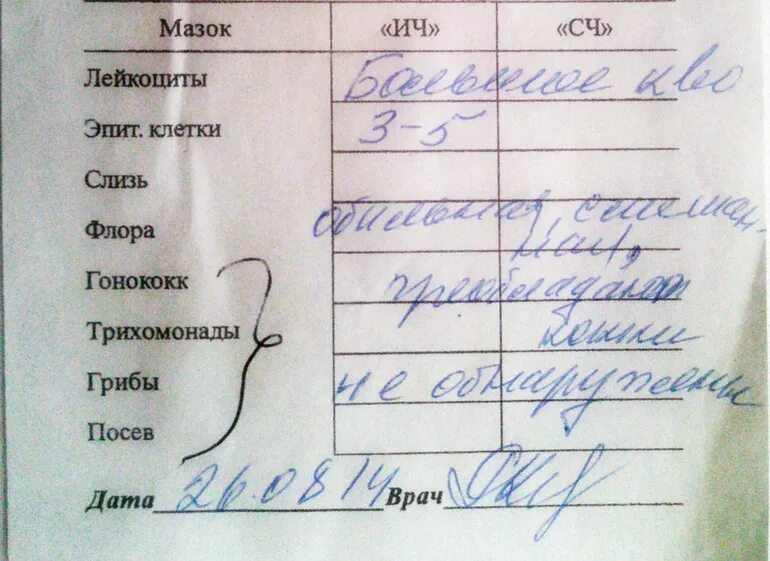 Мазок «ИЧ» «СЧ»
Лейкоциты Большое кво
Эпит. клетки 3-5
Слизь
Флора обильная, смешан-
ная,
Гонококк преобладают
Трихомонады кокки
Грибы не обнаружены
Посев
Дата 26.08.14 Врач